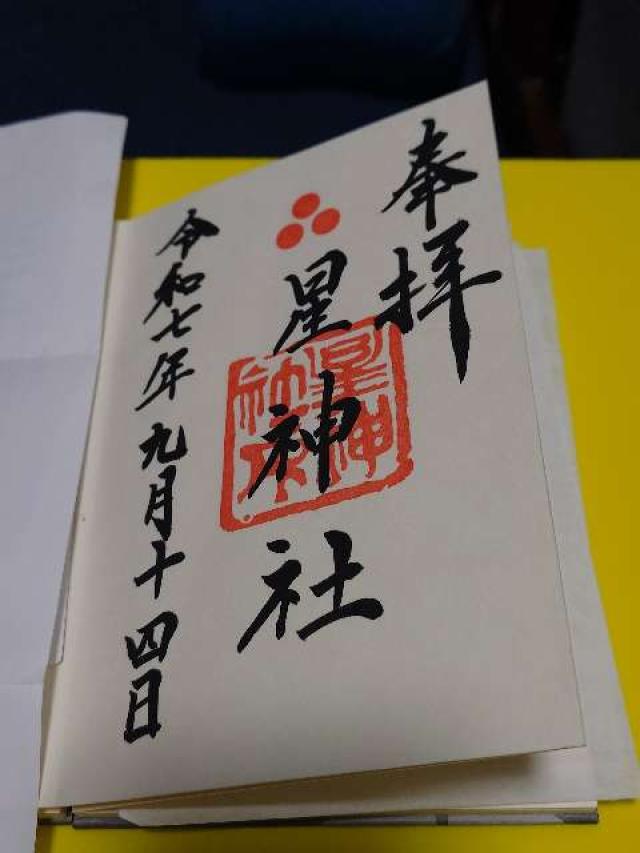 奉拝
星神社
令和七年九月十四日